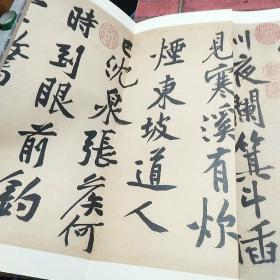 川夜闌箕斗插
見寒溪有炊
煙東坡道人
已沈泉張侯何
時到眼前釣